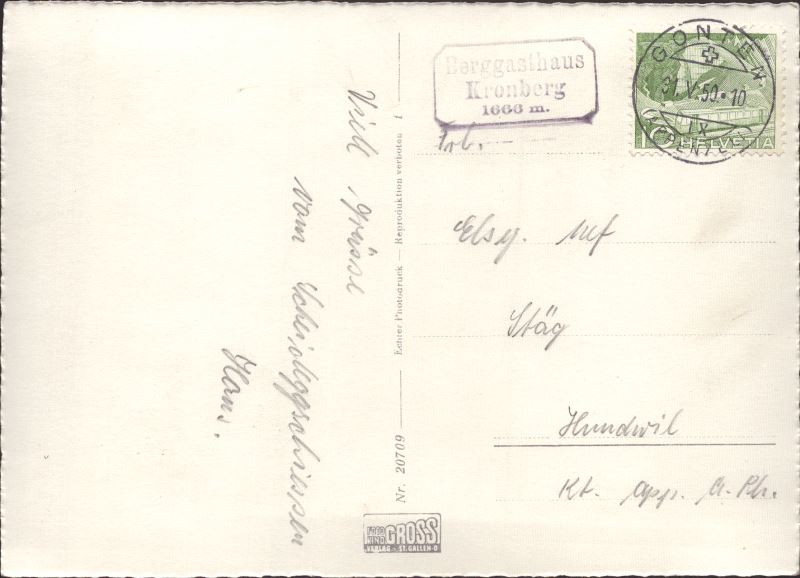 Berggasthaus
Kronberg
1666 m.
GONTEN
31.V.50.10
IX
(APPENZELL)
10 HELVETIA
Frl.
Elsy. Nef
Stäg
Hundwil
Kt. App. A. Rh.
Viele Grüsse
vom Scheideggschiessen
Hans.
Nr. 20709 Echter Photodruck — Reproduktion verboten 1
FOTO KINO GROSS
VERLAG - ST. GALLEN-O